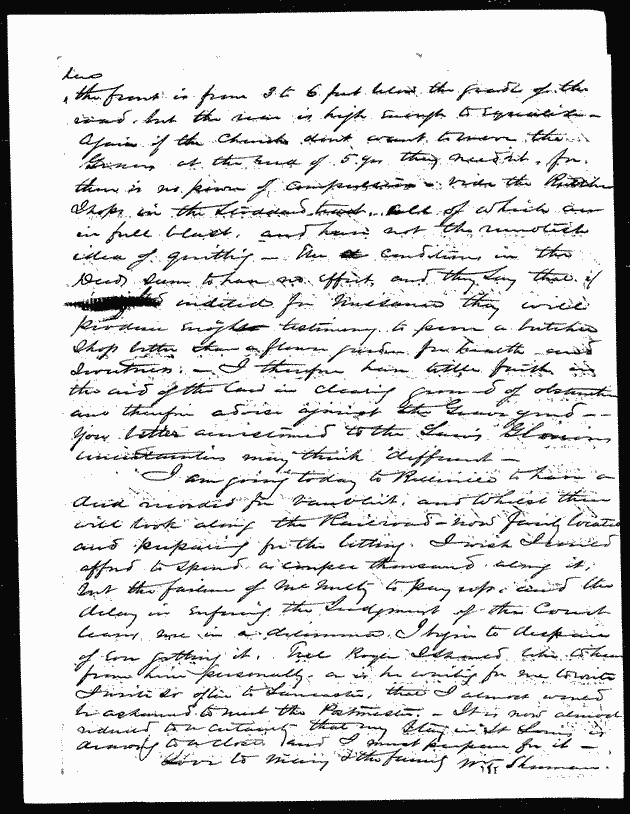 the front is from 3 to 6 feet below the grade of the
road, but the rear is high enough to equalize -
Again if the Church don't want to move the
Graves at the end of 5 yrs they need it, for
there is no power of compulsion - vide the Butcher
Shops in the Stoddard tract, all of which are
in full blast, and have not the remotest
idea of quitting - The conditions in the
Deed seem to have no effect, and they say that if
indicted for Nuisances they will
produce enough testimony to prove a butcher
shop better than a flower garden for health and
sweetness. - I therefore have little faith in
the aid of the law in clearing ground of obstructions
and therefore advise against the Graveyard -
You better accustomed to the Law's Glorious
uncertainties may think different -
I am going today to to have a
deed recorded for and whilst there
will look along the Railroad - now finely located
and preparing for the letting. I wish I could
afford to spend a couple thousand along it,
but the failure of McNulty to pay up, and the
delay in enforcing the Judgment of the Court
leaves me in a dilemma. I begin to despair
of ever getting it. Tell I should like to hear
from him personally, or is he waiting for me to write
I write so often to Lancaster, that I almost would
be ashamed to meet the Postmaster - It is now almost
reduced to a certainty that my stay in St Louis is
drawing to a close and I must prepare for it -
Love to Mary & the family W.T. Sherman.